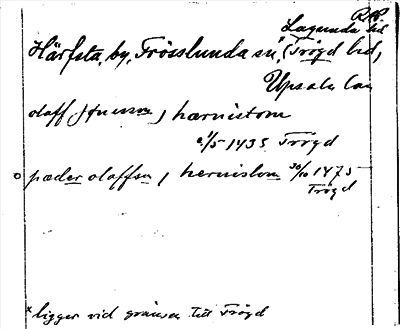 R.A.P.
Lagunda hd
Härfsta, by, Frösslunda sn, (Trögd hd,
Upsala län
olaff Jönsson, hærnistom
1/5 1435 Trögd
pæder olaffsn, hernistom 30/10 1475
Trögd
* ligger vid gränsen till Trögd